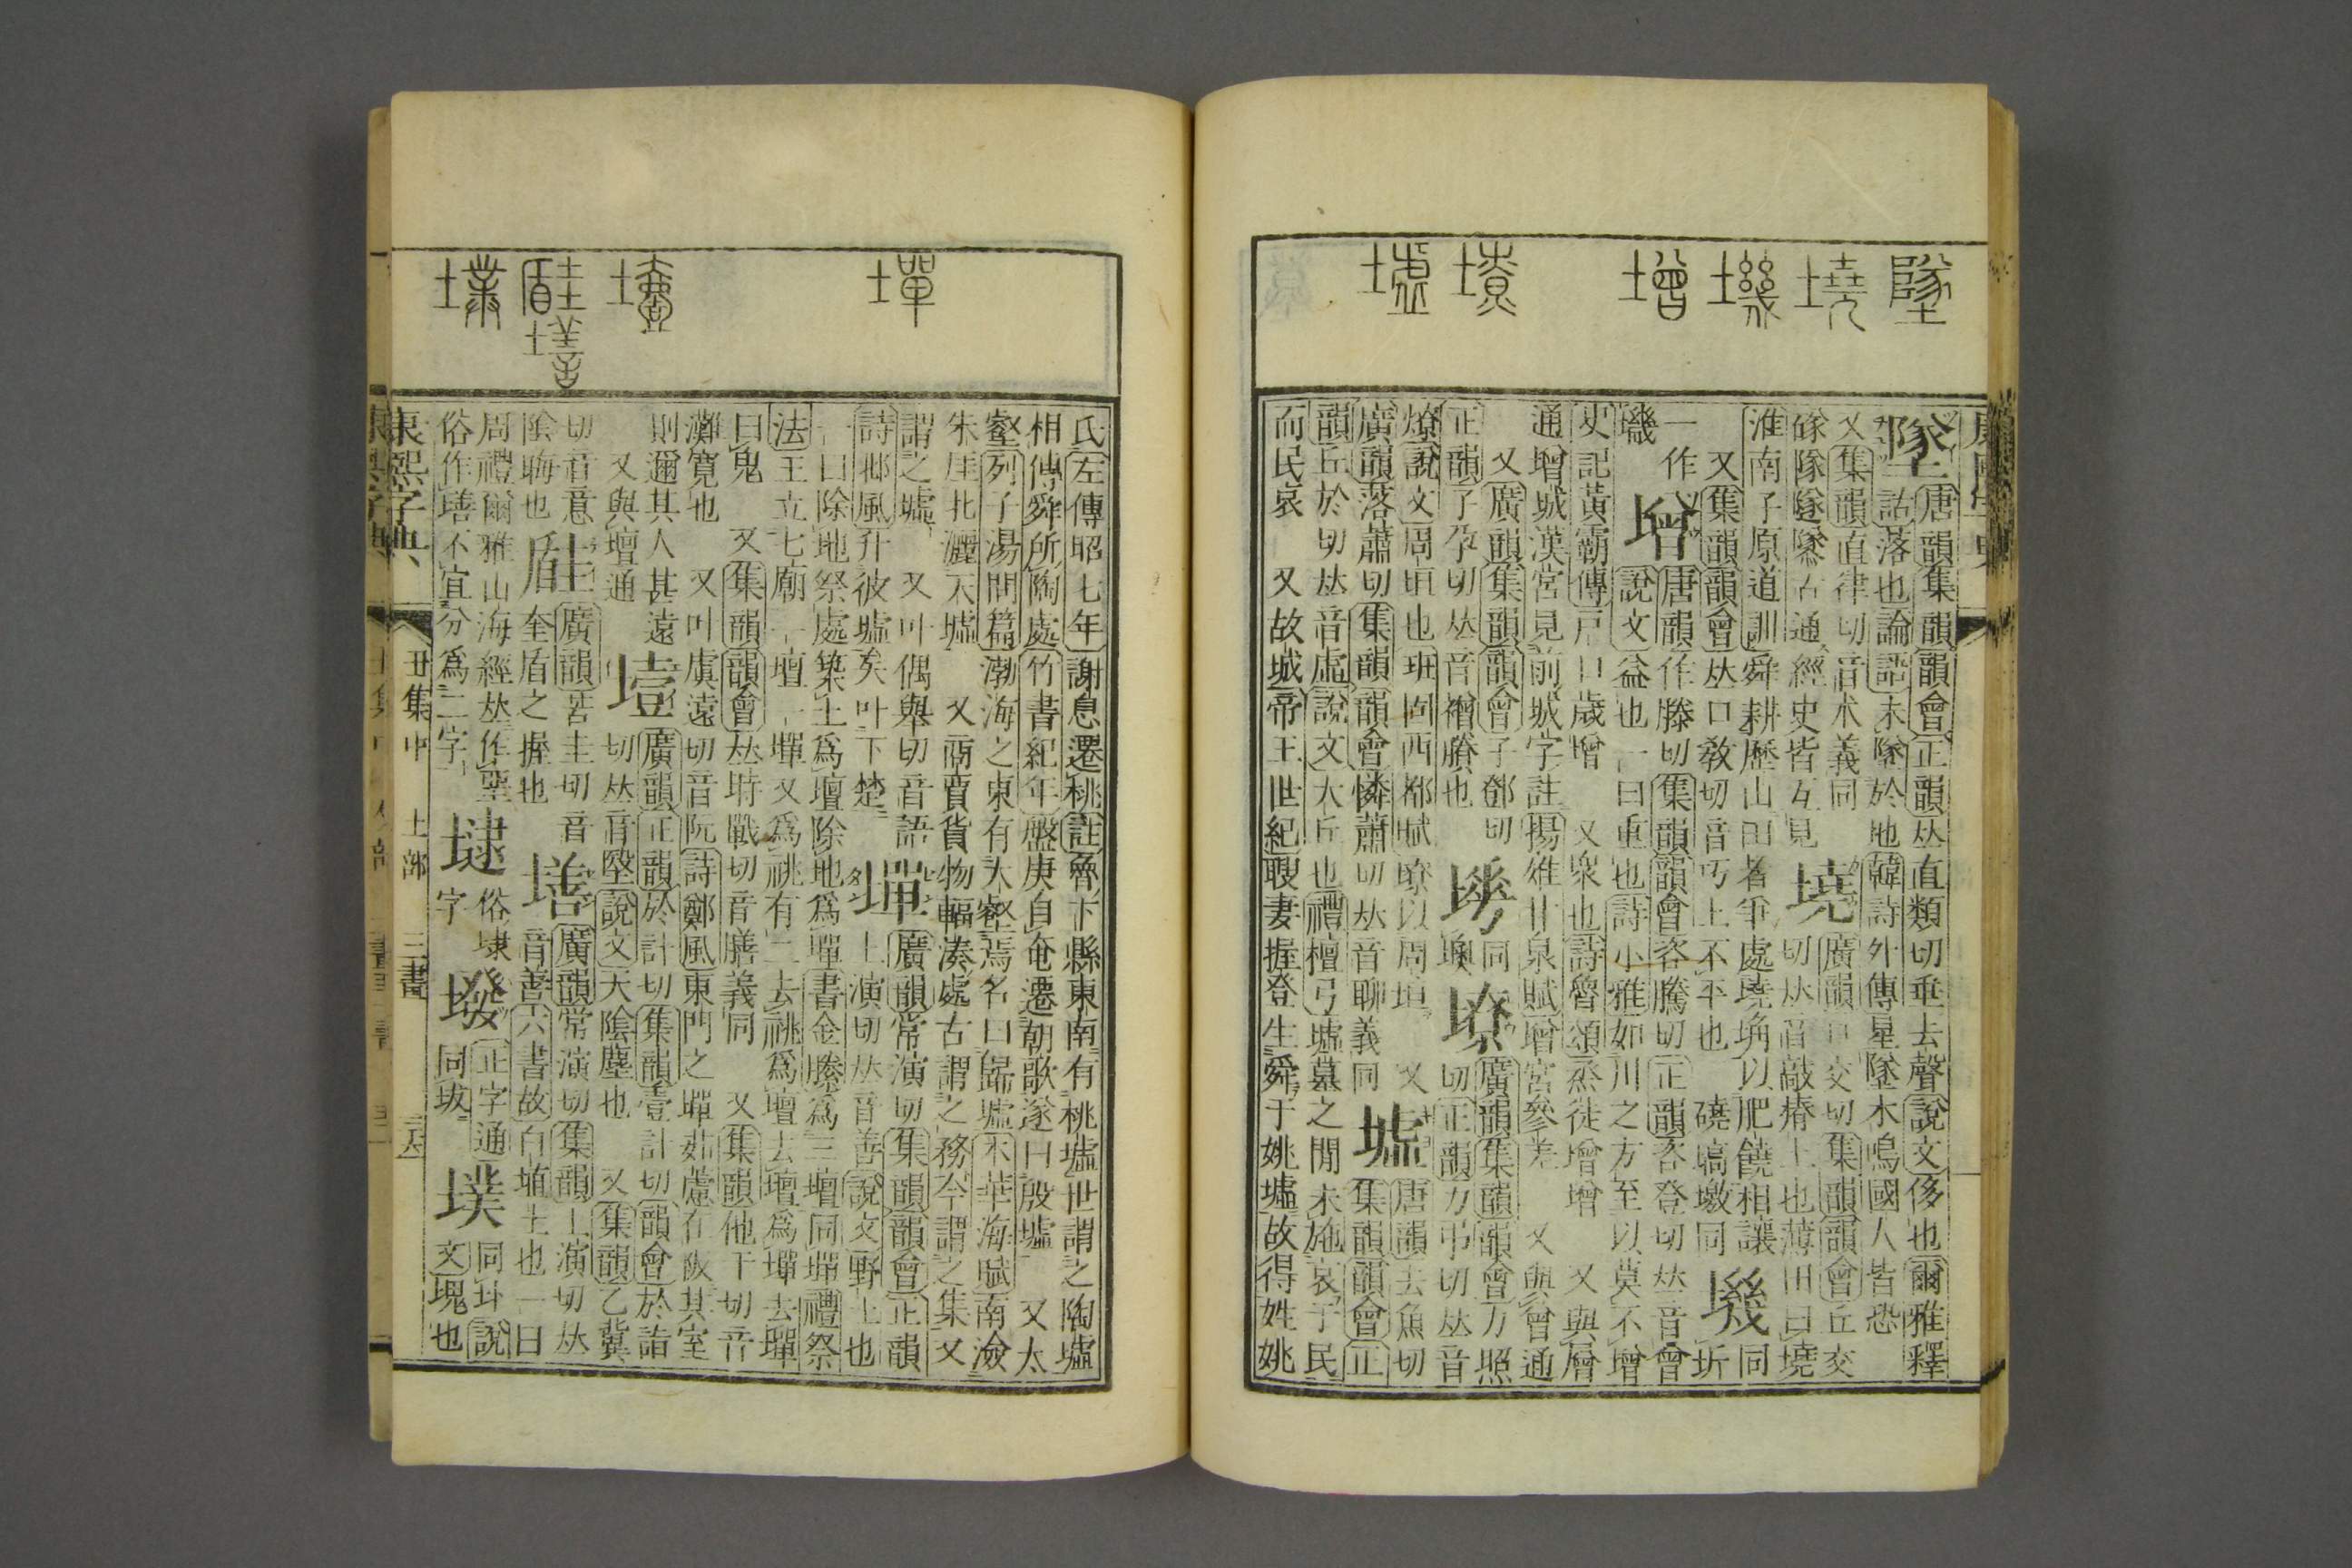 墜 墝 墱 增 墳 墟
墜唐韻集韻韻會正韻𠀤直類切垂去聲說文侈也爾雅釋
詁落也論語未墜於地韓詩外傳星墜木鳴國人皆恐
又集韻直律切音朮義同 墝廣韻口交切集韻韻會丘交
隊隧墜古通經史皆互見 切𠀤音敲瘠土也薄田曰墝
淮南子原道訓舜耕歷山田者爭處墝埆以肥饒相讓
又集韻韻會𠀤口敎切音巧土不平也 磽塙墽同
一作 增唐韻作滕切集韻韻會咨騰切正韻咨登切𠀤音曾
說文益也一曰重也詩小雅如川之方至以莫不增
史記黃霸傳戸口歲增 又衆也詩魯頌烝徒增增 又與層
通增城漢宮見前城字註揚雄甘泉賦增宮參差 又與曾通
又廣韻集韻韻會子鄧切 同 廣韻集韻韻會力照
正韻子孕切𠀤音𧝏賸也 切正韻力弔切𠀤音
燎說文周垣也班固西都賦繚以周垣 又唐韻去魚切
廣韻落蕭切集韻韻會憐蕭切𠀤音聊義同 墟集韻韻會正
韻丘於切𠀤音虛說文大丘也禮檀弓墟墓之閒未施哀于民
而民哀 又故城帝王世紀瞍妻握登生舜于姚墟故得姓姚
墠 墣
氏左傳昭七年謝息遷桃註魯下縣東南有桃墟世謂之陶墟
相傳舜所陶處竹書紀年盤庚自奄遷朝歌遂曰殷墟 又太
壑列子湯問篇渤海之東有大壑焉名曰歸墟木華海賦南澰
朱厓北灑天墟 又商賣貨物輻湊處古謂之務今謂之集又
謂之墟 又叶偶舉切音語 墠廣韻常演切集韻韻會正韻
詩鄘風升彼墟矣叶下楚 上演切𠀤音善說文野土也
一曰除地祭處築土爲壇除地爲墠書金縢爲三壇同墠禮祭
法王立七廟一壇一墠又爲祧有二去祧爲壇去壇爲墠去墠
曰鬼 又集韻韻會𠀤時戰切音膳義同 又集韻他干切音
灘寬也 又叶虞遠切音阮詩鄭風東門之墠茹藘在阪其室
則邇其人甚遠 廣韻正韻於計切集韻壹計切韻會於詣
又與壇通 切𠀤音瞖說文天陰塵也 又集韻乙冀
切音意 廣韻苦圭切音 墡廣韻常演切集韻上演切𠀤
陰晦也 奎盾之握也 音善六書故白埴土也一曰
周禮爾雅山海經𠀤作堊 俗埭 正字通 同圤說
俗作墡不宜分爲二字 字 同坺 墣文塊也
康熙字典 丑集中 土部 三畫